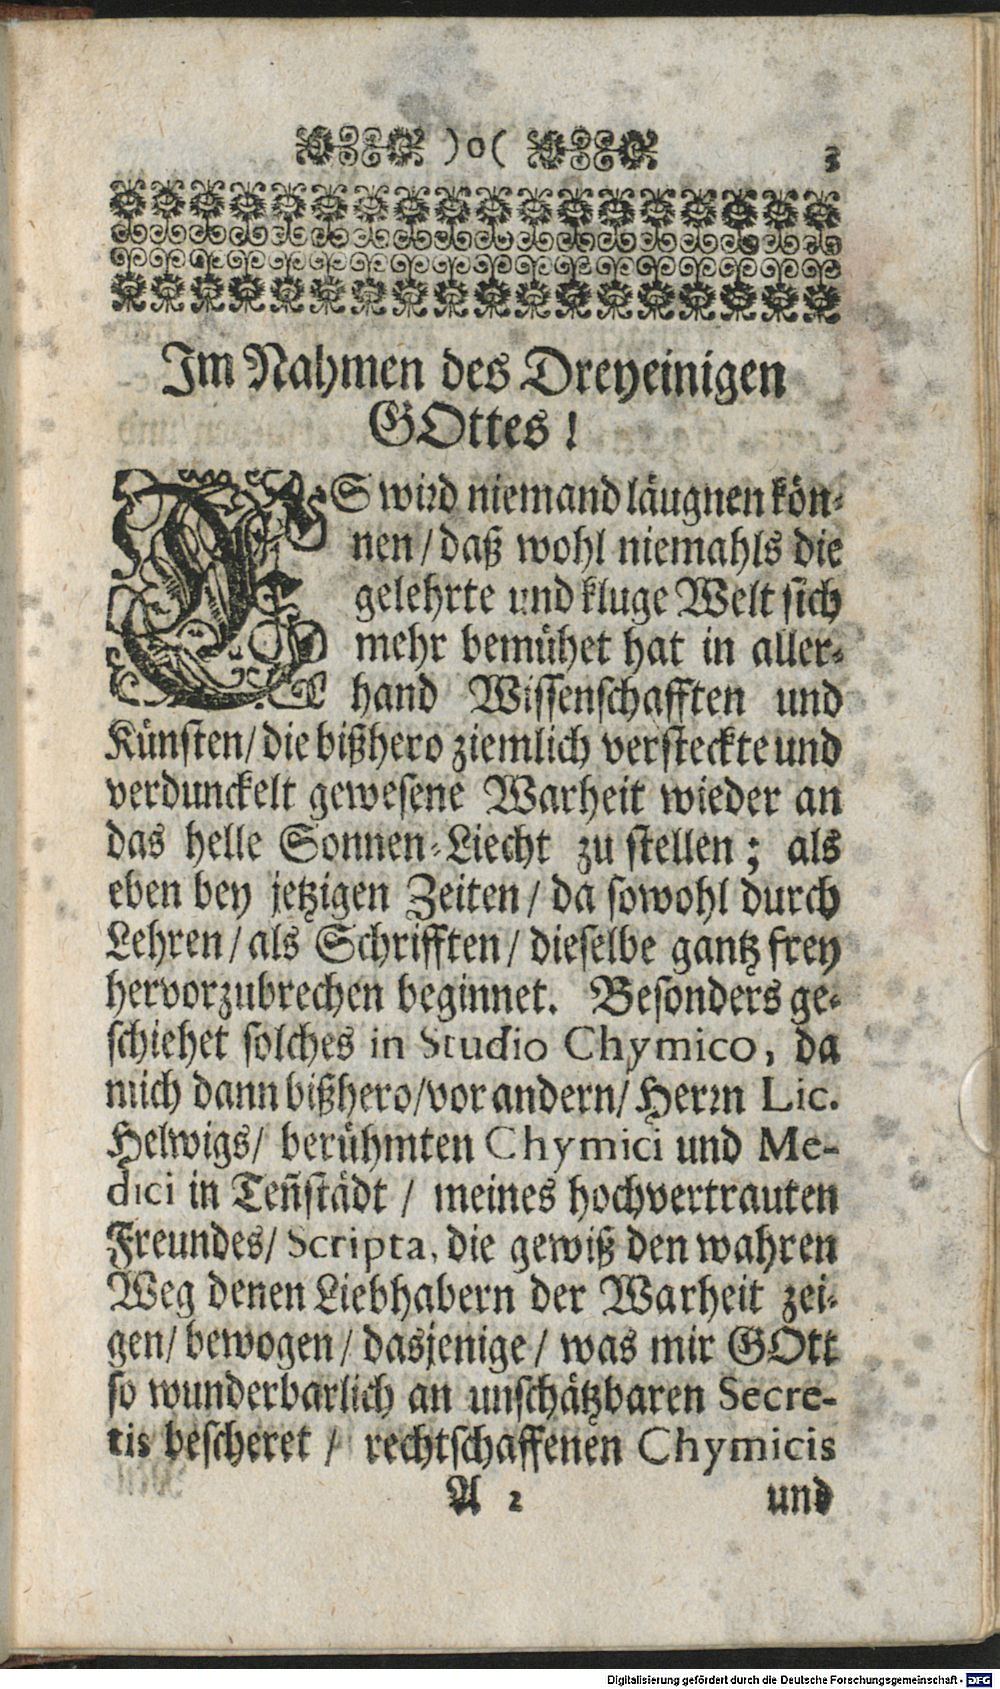 )o( 3
Im Nahmen des Dreyeinigen
GOttes!
ES wird niemand läugnen kön-
nen/ daß wohl niemahls die
gelehrte und kluge Welt sich
mehr bemühet hat in aller-
hand Wissenschafften und
Künsten/ die bißhero ziemlich versteckte und
verdunckelt gewesene Warheit wieder an
das helle Sonnen-Liecht zu stellen; als
eben bey jetzigen Zeiten/ da sowohl durch
Lehren/ als Schrifften/ dieselbe gantz frey
hervorzubrechen beginnet. Besonders ge-
schiehet solches in Studio Chymico, da
mich dann bißhero/ vor andern/ Herrn Lic.
Helwigs/ berühmten Chymici und Me-
dici in Teñstädt/ meines hochvertrauten
Freundes/ Scripta, die gewiß den wahren
Weg denen Liebhabern der Warheit zei-
gen/ bewogen/ dasjenige/ was mir GOtt
so wunderbarlich an unschätzbaren Secre-
tis bescheret/ rechtschaffenen Chymicis
A 2 und
Digitalisierung gefördert durch die Deutsche Forschungsgemeinschaft - DFG